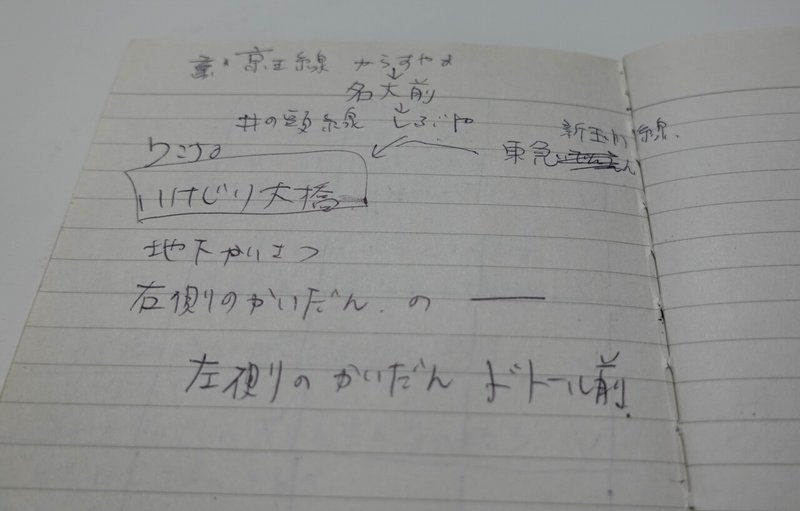 京王線 からすやま
↓
名大前
↓
井の頭線 しぶや
新玉川線.
東急
いけじり大橋
地下かいさつ
右側のかいだん. の ——
左側のかいだん ドトール前.